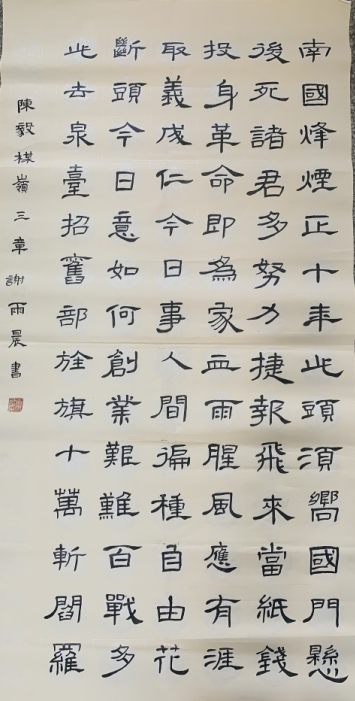 南國烽煙正十年此頭須嚮國門懸
後死諸君多努力捷報飛來當紙錢
投身革命即為家血雨腥風應有涯
取義成仁今日事人間徧種自由花
斷頭今日意如何創業艱難百戰多
此去泉臺招舊部旌旗十萬斬閻羅
陳毅楳嶺三章謝雨晨書